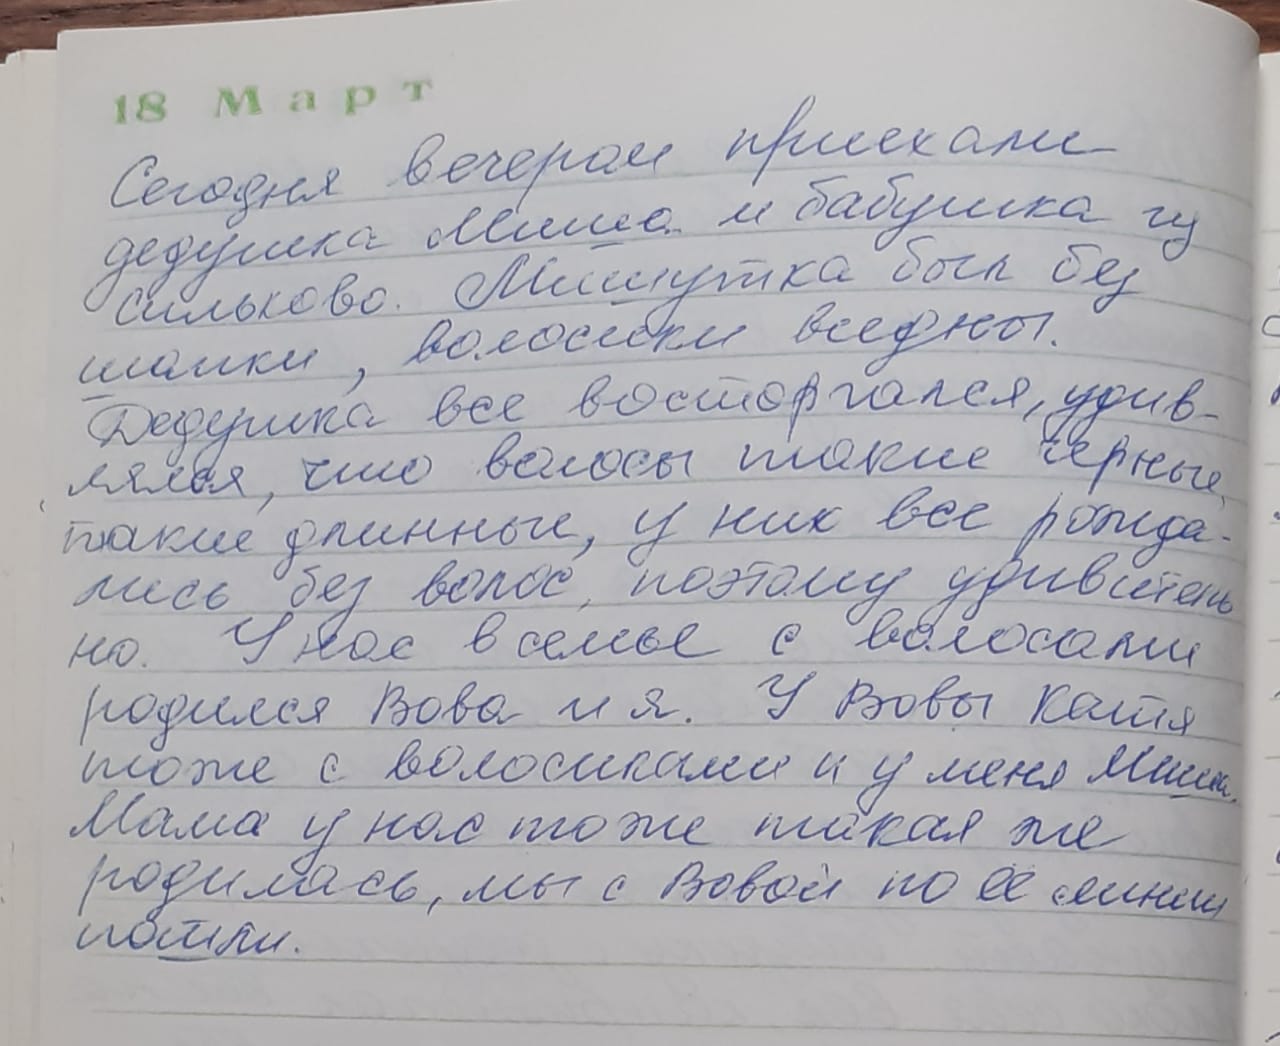 18 Март
Сегодня вечером приехали
дедушка Миша и бабушка из
Сильково. Мишутка был без
шапки, волосики видны.
Дедушка все восторгался, удив-
лялся, что волосы такие черные,
такие длинные, у них все рожда-
лись без волос, поэтому удивитель
но. У нас в семье с волосами
родился Вова и я. У Вовы Катя
тоже с волосиками и у меня Миша.
Мама у нас тоже такая же
родилась, мы с Вовой по её линии
пошли.